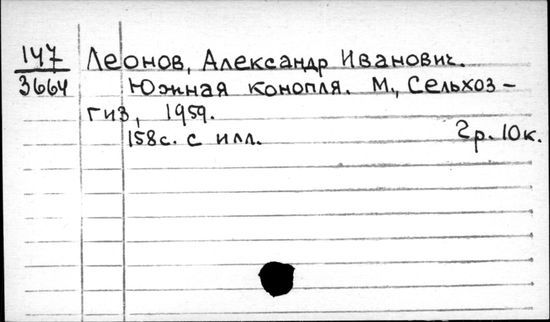 147 Леонов, Александр Иванович.
3664 Южная конопля. М., Сельхоз-
гиз, 1959.
158с. с илл. 2р. 10к.